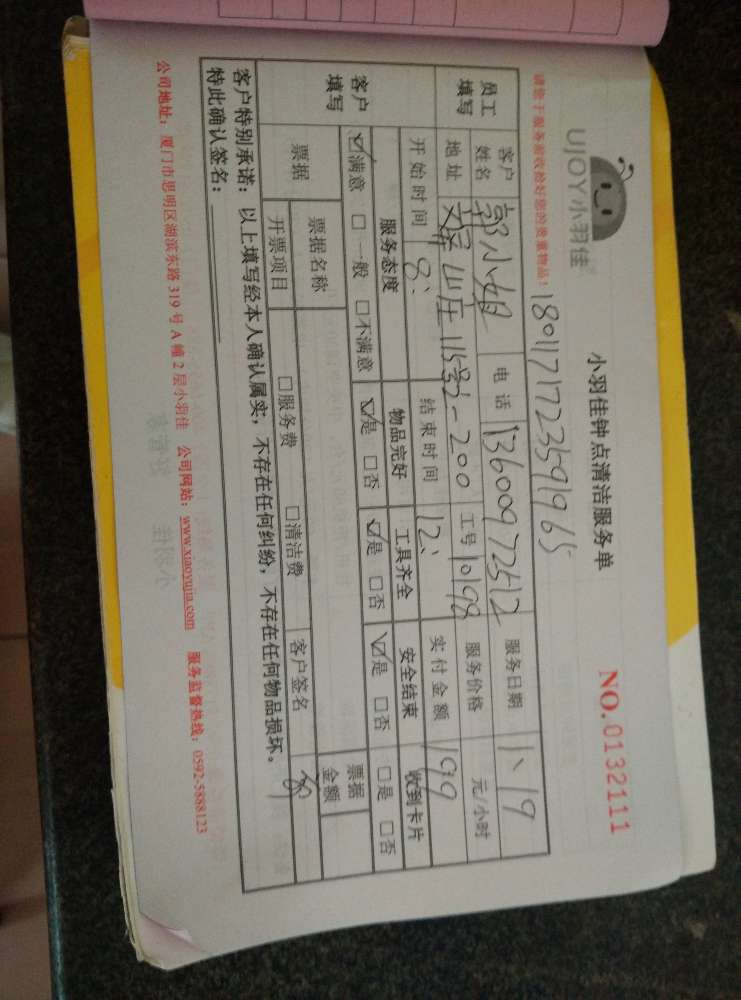 UJOY小羽佳
小羽佳钟点清洁服务单
NO.0132111
请您于服务前收拾好您的贵重物品!
18011717723591965
员工填写 客户姓名 郭小姐 电话 13600972512 服务日期 1、19
地址 山庄115号-200 工号 10198 服务价格 元/小时
开始时间 8: 结束时间 12: 实付金额 199
客户填写 服务态度 物品完好 工具齐全 安全结束 收到卡片
☑满意 □一般 □不满意 ☑是 □否 ☑是 □否 ☑是 □否 □是 □否
票据 票据名称 票据金额
开票项目 □服务费 □清洁费 客户签名
客户特别承诺:以上填写经本人确认属实,不存在任何纠纷,不存在任何物品损坏。
特此确认签名:
公司地址:厦门市思明区湖滨东路319号A幢2层小羽佳 公司网站:www.xiaoyujia.com 服务监督热线:0592-5888123